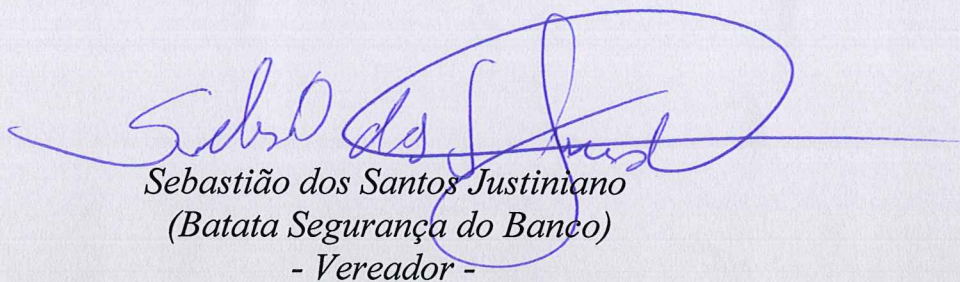 Sebastião dos Santos Justiniano
(Batata Segurança do Banco)
- Vereador -